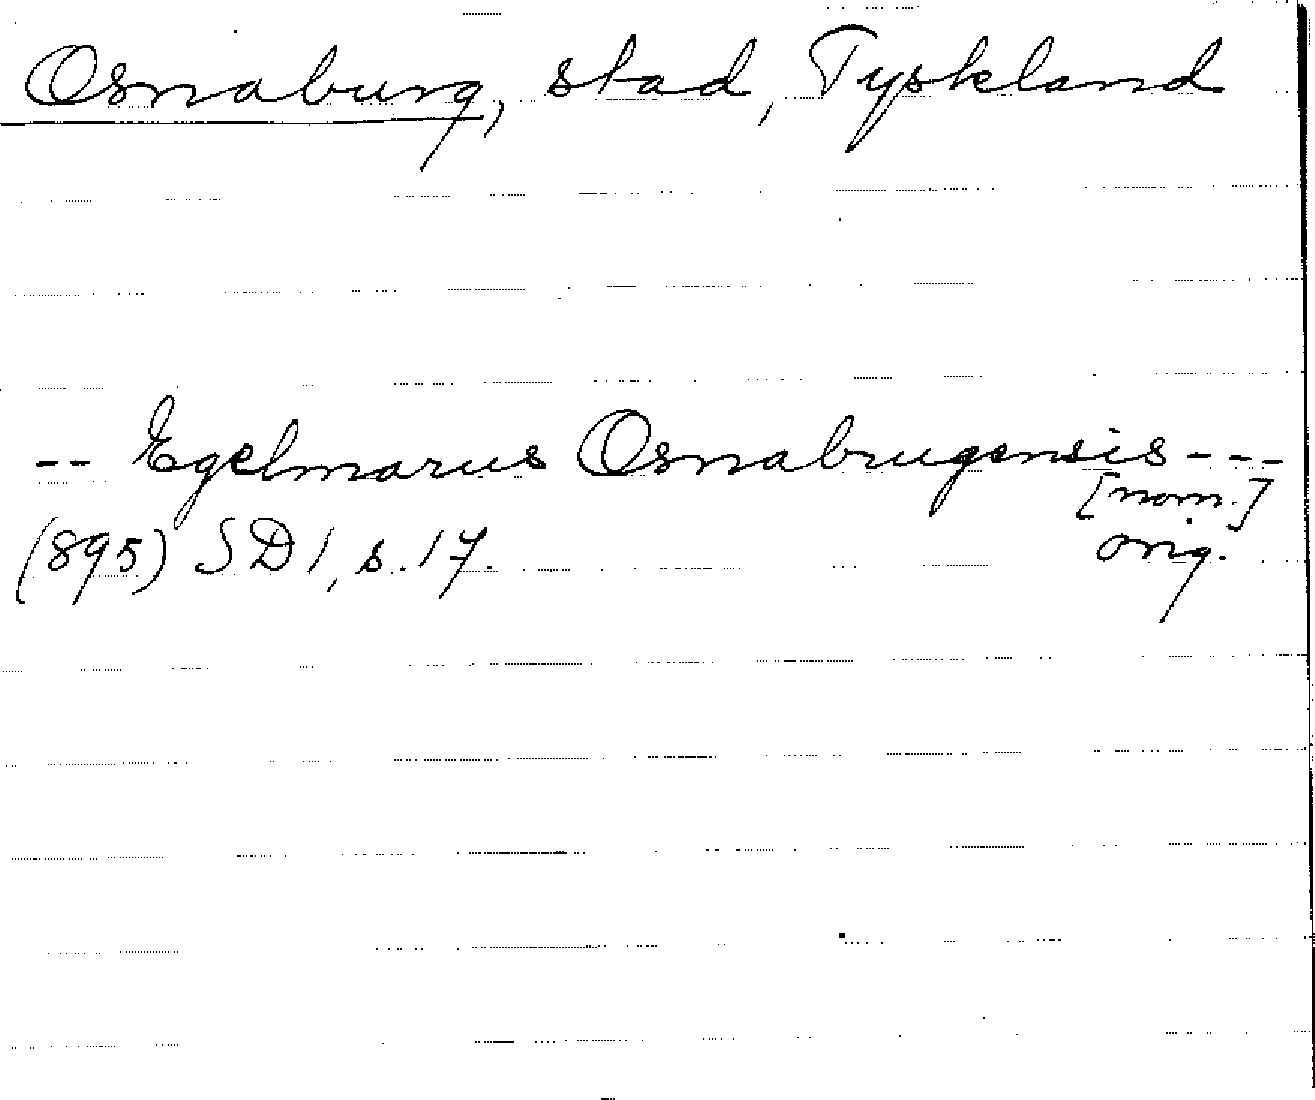 Osnaburg, stad, Tyskland
-- Egelmarus Osnabrugensis ---
[nom.]
(895) SD 1, s. 17.
orig.